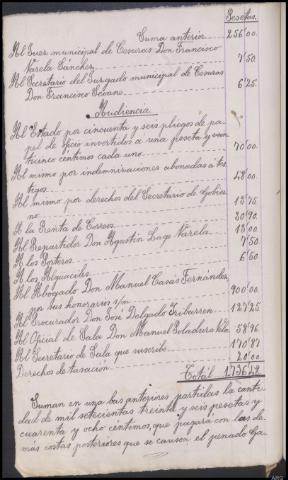 Pesetas.
Suma anterior 256'00.
Al Juez municipal de Cesuras Don Francisco
Varela Sánchez 7'50.
Al Secretario del Juzgado municipal de Cesuras
Don Francisco Seoane 6'25.
Audiencia
Al Estado por cincuenta y seis pliegos de pa-
pel de oficio invertidos a una peseta y vein-
ticinco centimos cada uno 70'00
Al mismo por indemnizaciones abonadas a tes-
tigos 48'00
Al mismo por derechos del Secretario de Gobier-
no 15'75
A la Renta de Correos 20'90.
Al Repartidor Don Agustín Lage Varela 15'00
A los Porteros 7'50
A los Alguaciles 6'50
Al Abogado Don Manuel Casás Fernández,
por sus honorarios s/m 900'00
Al Procurador Don José Delgado Iribarren 127'25
Al Oficial de Sala Don Manuel 58'96
Al Secretario de Sala que suscribe 170'87
Derechos de tasación 20'00
Total 1.736'48
Suman en una las anteriores partidas la canti-
dad de mil setecientas treinta y seis pesetas y
cuarenta y ocho céntimos, que pagará con las de-
más costas posteriores que se causen el penado Ga-